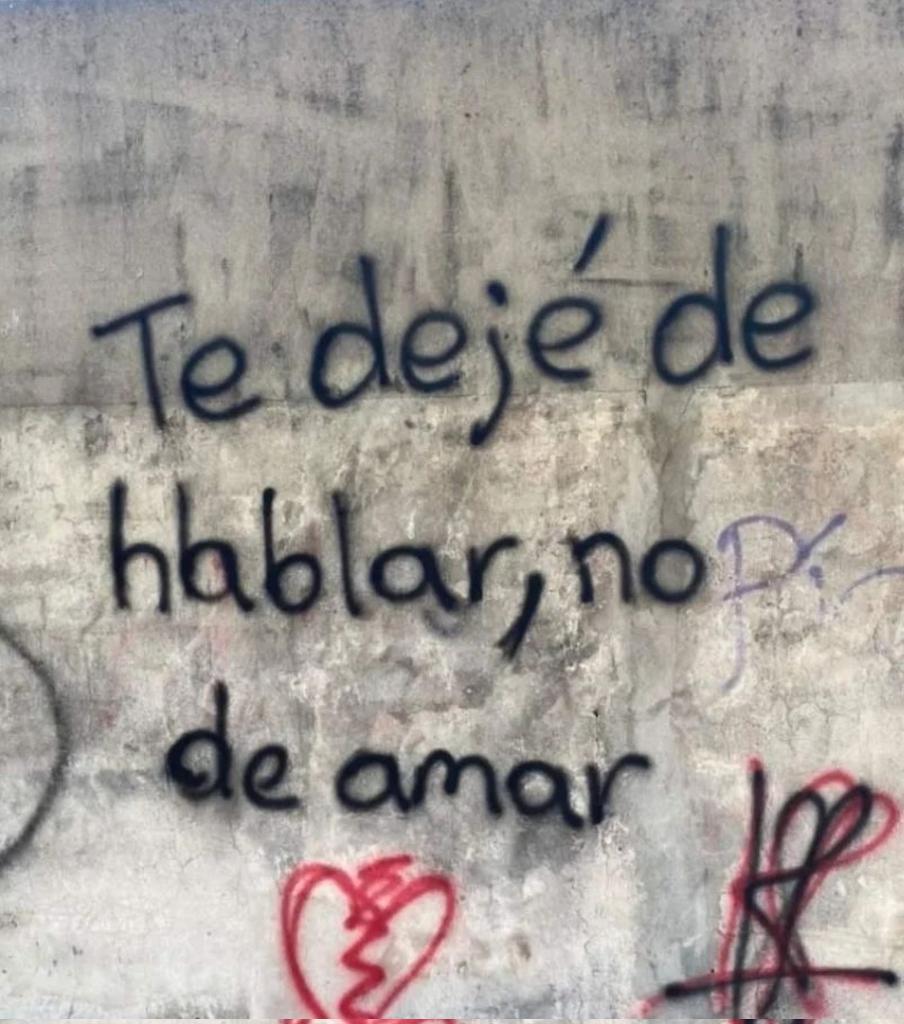 Te dejé de
hablar, no
de amar